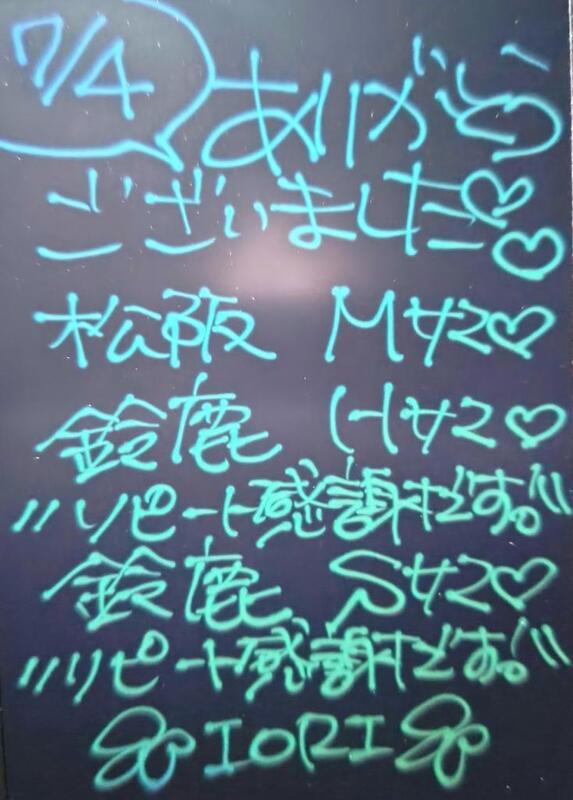 7/4
ありがとう
ございました♡♡
松阪 Mサマ♡
鈴鹿 Hサマ♡
〃リピート感謝です。〃
鈴鹿 Sサマ♡
〃リピート感謝です。〃
IORI